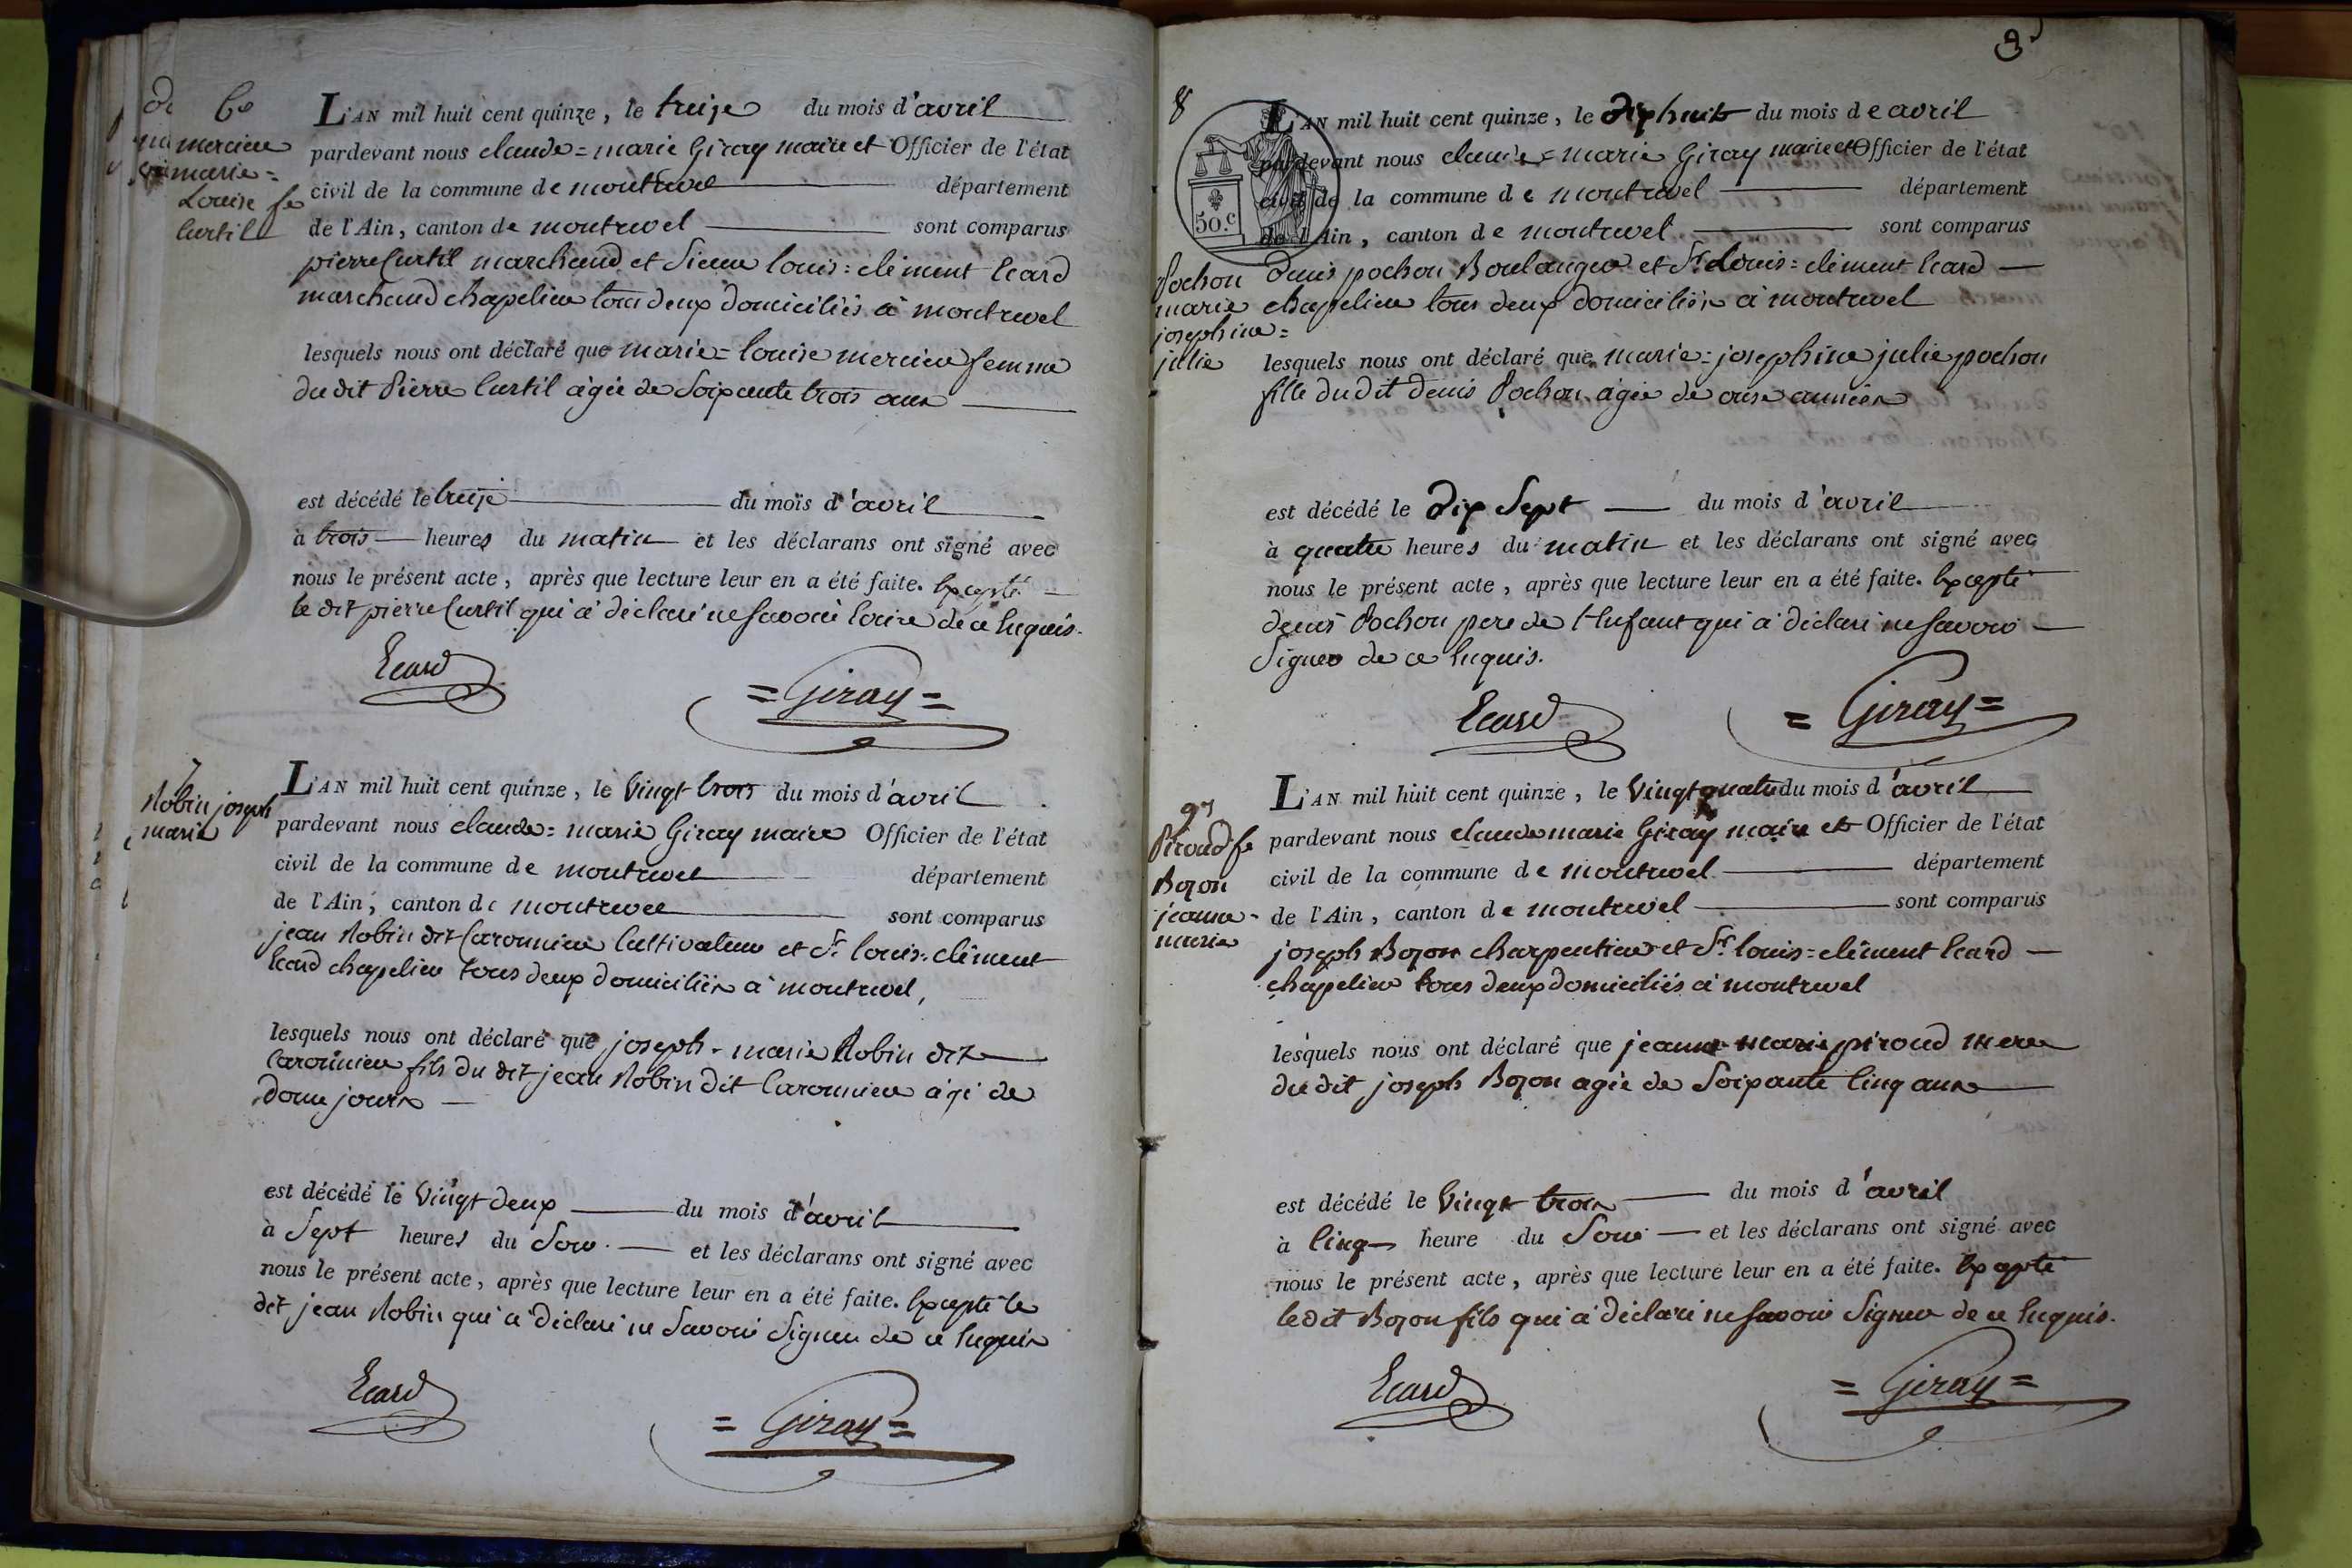 6e
mercier
marie=
Louise fe
Curtil
L'AN mil huit cent quinze, le treize du mois d'avril
pardevant nous claude=marie Giray maire et Officier de l'état
civil de la commune de montrevel département
de l'Ain, canton de montrevel sont comparus
pierre Curtil marchand et Sieur louis=clément Ecard
marchand chapelier tous deux domiciliés à montrevel
lesquels nous ont déclaré que marie=louise mercier femme
du dit Pierre Curtil agée de Soixante trois ans
est décédé le treize du mois d'avril
à trois heures du matin et les déclarans ont signé avec
nous le présent acte, après que lecture leur en a été faite. Excepté
le dit pierre Curtil qui a déclaré ne Savoir Ecrire de ce Enquis.
Ecard
=Giray=
7
Robin joseph
marie
L'AN mil huit cent quinze, le Vingt trois du mois d'avril
pardevant nous claude=marie Giray maire Officier de l'état
civil de la commune de montrevel département
de l'Ain, canton de montrevel sont comparus
jean Robin dit Caronnier Cultivateur et Sr. louis=clément
Ecard chapelier tous deux domiciliés à montrevel,
lesquels nous ont déclaré que joseph-marie Robin dit
Caronnier fils du dit jean Robin dit Caronnier agé de
douze jours
est décédé le Vingt deux du mois d'avril
à Sept heures du Soir. et les déclarans ont signé avec
nous le présent acte, après que lecture leur en a été faite. Excepté le
dit jean Robin qui a déclaré ne Savoir Signer de ce Enquis
Ecard
=Giray=
3
8
50.c
Pochon
marie
josephine=
julie
L'AN mil huit cent quinze, le dix huit du mois de avril
pardevant nous claude=marie Giray maire et Officier de l'état
civil de la commune de montrevel département
de l'Ain, canton de montrevel sont comparus
Denis pochon Boulanger et Sr. Louis=clément Ecard
chapelier tous deux domiciliés à montrevel
lesquels nous ont déclaré que marie=josephine julie pochon
fille du dit denis Pochon agée de onze années
est décédé le Dix Sept du mois d'avril
à quatre heures du matin et les déclarans ont signé avec
nous le présent acte, après que lecture leur en a été faite. Excepté
denis Pochon pere de l'Enfant qui a déclaré ne Savoir
Signer de ce Enquis.
Ecard
=Giray=
9
Piroud fe
Bozon
jeanne-
marie
L'AN mil huit cent quinze, le Vingt quatre du mois d'avril
pardevant nous claude marie Giray maire et Officier de l'état
civil de la commune de montrevel département
de l'Ain, canton de montrevel sont comparus
joseph Bozon charpentier et Sr. louis=clément Ecard
chapelier tous deux domiciliés à montrevel
lesquels nous ont déclaré que jeanne marie piroud mere
du dit joseph Bozon agée de Soixante Cinq ans
est décédé le Vingt trois du mois d'avril
à Cinq heure du Soir et les déclarans ont signé avec
nous le présent acte, après que lecture leur en a été faite. Excepté
le dit Bozon fils qui a déclaré ne Savoir Signer de ce Enquis.
Ecard
=Giray=